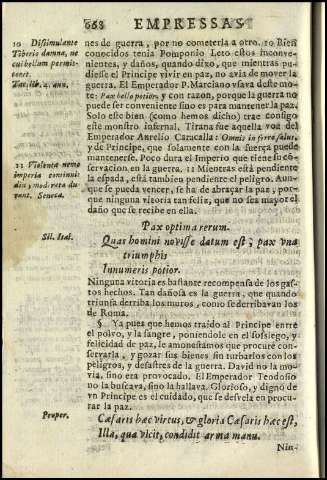 668 EMPRESSAS
10 Dissimulante
Tiberio damna, ne
cui bellum permit-
teret.
Tac. lib. 4. ann.
11 Violenta nemo
imperia continuit
diu; moderata du-
rant. Seneca.
Sil. Ital.
Proper.
nes de guerra, por no cometerla a otro. 10 Bien
conocidos tenia Pomponio Leto estos inconve-
nientes, y daños, quando dixo, que mientras pu-
diesse el Principe vivir en paz, no avia de mover la
guerra. El Emperador P. Marciano usava deste mo-
te: Pax bello potior, y con razon, porque la guerra no
puede ser conveniente sino es para mantener la paz.
Solo este bien (como hemos dicho) trae consigo
este monstro infernal. Tirana fue aquella voz del
Emperador Aurelio Caracalla: Omnis in ferro salus,
y de Principe, que solamente con la fuerça puede
mantenerse. Poco dura el Imperio que tiene su co-
servacion en la guerra. 11 Mientras està pendiente
la espada, està tambien pendiente el peligro. Aun-
que se pueda vencer, se ha de abraçar la paz, por-
que ninguna vitoria tan feliz, que no sea mayor el
daño que se recibe en ella.
Pax optima rerum.
Quas homini novisse datum est; pax vna
triumphis
Innumeris potior.
Ninguna vitoria es bastante recompensa de los gas-
tos hechos. Tan dañosa es la guerra, que quando
triunfa derriba los muros, como se derribavan los
de Roma.
§. Ya pues que hemos traido al Principe entre
el polvo, y la sangre, poniendole en el sossiego, y
felicidad de paz, le amonestamos que procure con-
servarla, y gozar sus bienes sin turbarlos con los
peligros, y desastres de la guerra. David no la mo-
via, sino era provocado. El Emperador Teodosio
no la buscava, sino la hallava. Glorioso, y digno de
vn Principe es el cuidado, que se desvela en procu-
rar la paz.
Cæsaris hæc virtus, & gloria Cæsaris hæc est,
Illa, qua vicit, condidit arma manu.
Nin-